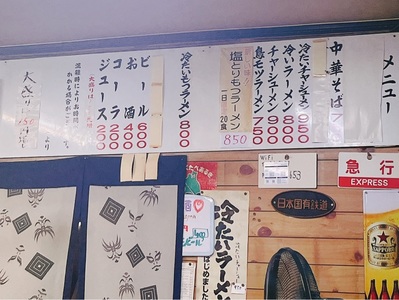 メニュー
中華そば
冷たいチャシュー 950
冷たいラーメン 800
チャーシューメン 900
鳥モツラーメン 750
塩とりもつラーメン
一日 20食
850
冷たいもつラーメン 800
ビール 600
お酒 400
コーラ 200
ジュース 200
混雑時によりお時間
大盛り
より
急行
EXPRESS
WiFi
日本国有鉄道
冷たいラーメン
はじめました
SAPPORO